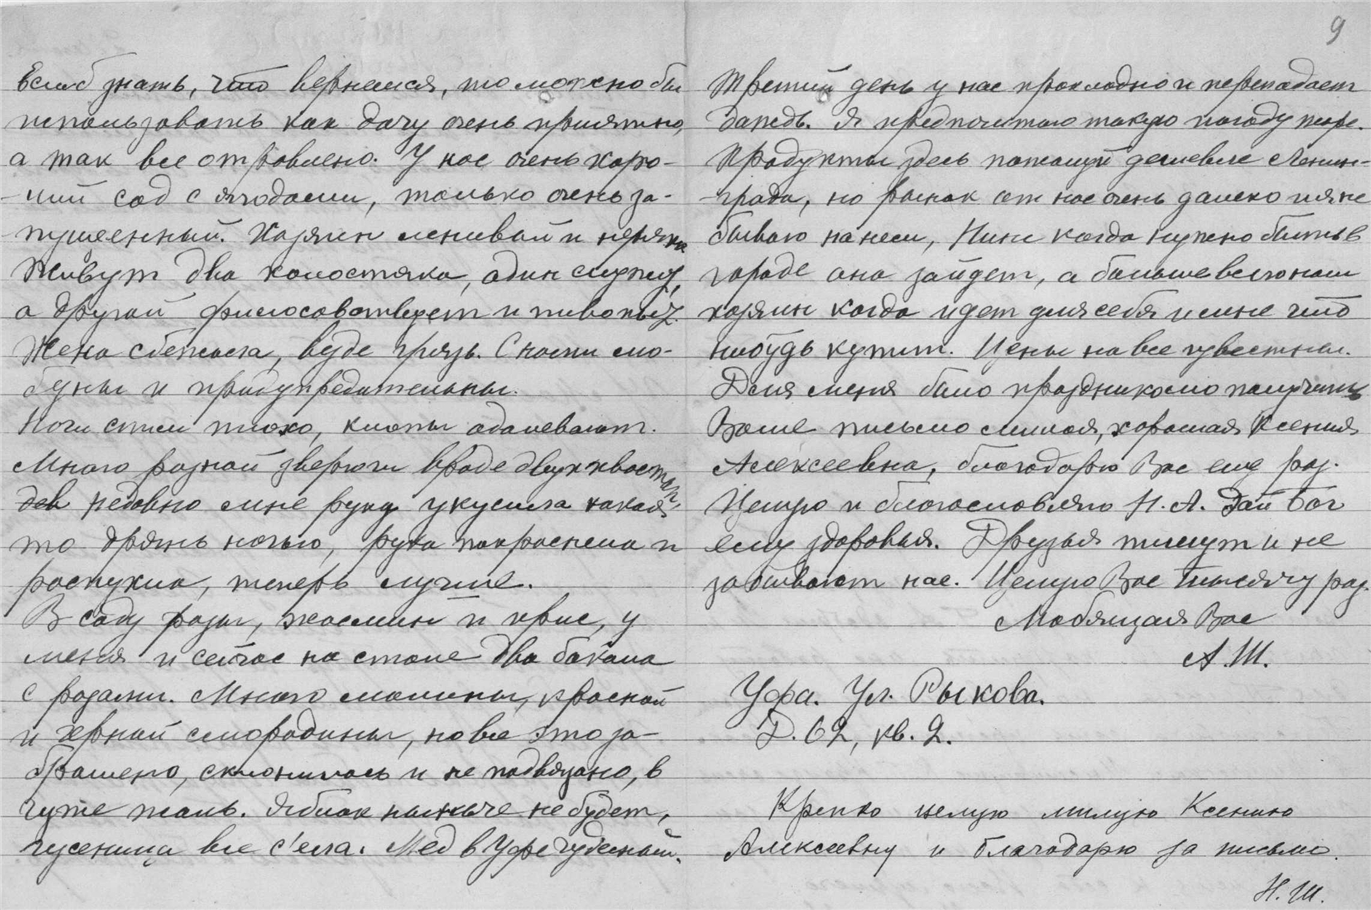 Еслиб знать, что вернемся, то можно бы
использовать как дачу очень приятно,
а так все отравлено. У нас очень хоро-
-ший сад с ягодами, только очень за-
пущенный. Хозяин ленивый и неряха
Живут два холостяка, один служит,
а другой философствует и пивопьет.
Жена сбежала, везде грязь. С нами лю-
безны и предупредительны.
Ночи спим плохо, клопы одолевают.
Много разной зверюги вроде двухвосток
недавно мне руку укусила какая-
то дрянь ночью, рука покраснела и
распухла, теперь лучше.
В саду розы, жасмин и ирис, у
меня и сейчас на столе два бокала
с розами. Много малины, красной
и черной смородины, но все это за-
брошено, склонилось и не подвязано, в
гуще жаль. Яблок нынче не будет,
гусеница все с'ела. Мед в Уфе чудесный.
9
Третий день у нас прохладно и перепадает
дождь. Я предпочитаю такую погоду жаре.
Продукты здесь пожалуй дешевле Ленин-
-града, но рынок от нас очень далеко и я не
бываю на нем, Нине когда нужно быть в
городе она зайдет, а больше всего наш
хозяин когда идет для себя и мне что
нибудь купит. Цены на все известны.
Для меня было праздником получить
Ваше письмо милая, хорошая Ксения
Алексеевна, благодарю Вас еще раз.
Целую и благословляю Н. А. Дай Бог
ему здоровья. Друзья пишут и не
забывают нас. Целую Вас тысячу раз.
Любящая Вас
А. Ш.
Уфа. Ул. Рыкова.
Д. 62, кв. 2.
Крепко целую милую Ксению
Алексеевну и благодарю за письмо.
Н. Ш.